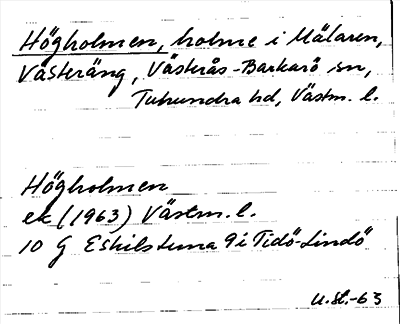 Högholmen, holme i Mälaren,
Västeräng, Västerås-Barkarö sn,
Tuhundra hd, Västm. l.
Högholmen
ek (1963) Västm. l.
10 G Eskilstuna 9 i Tidö-Lindö
u.sl.-63